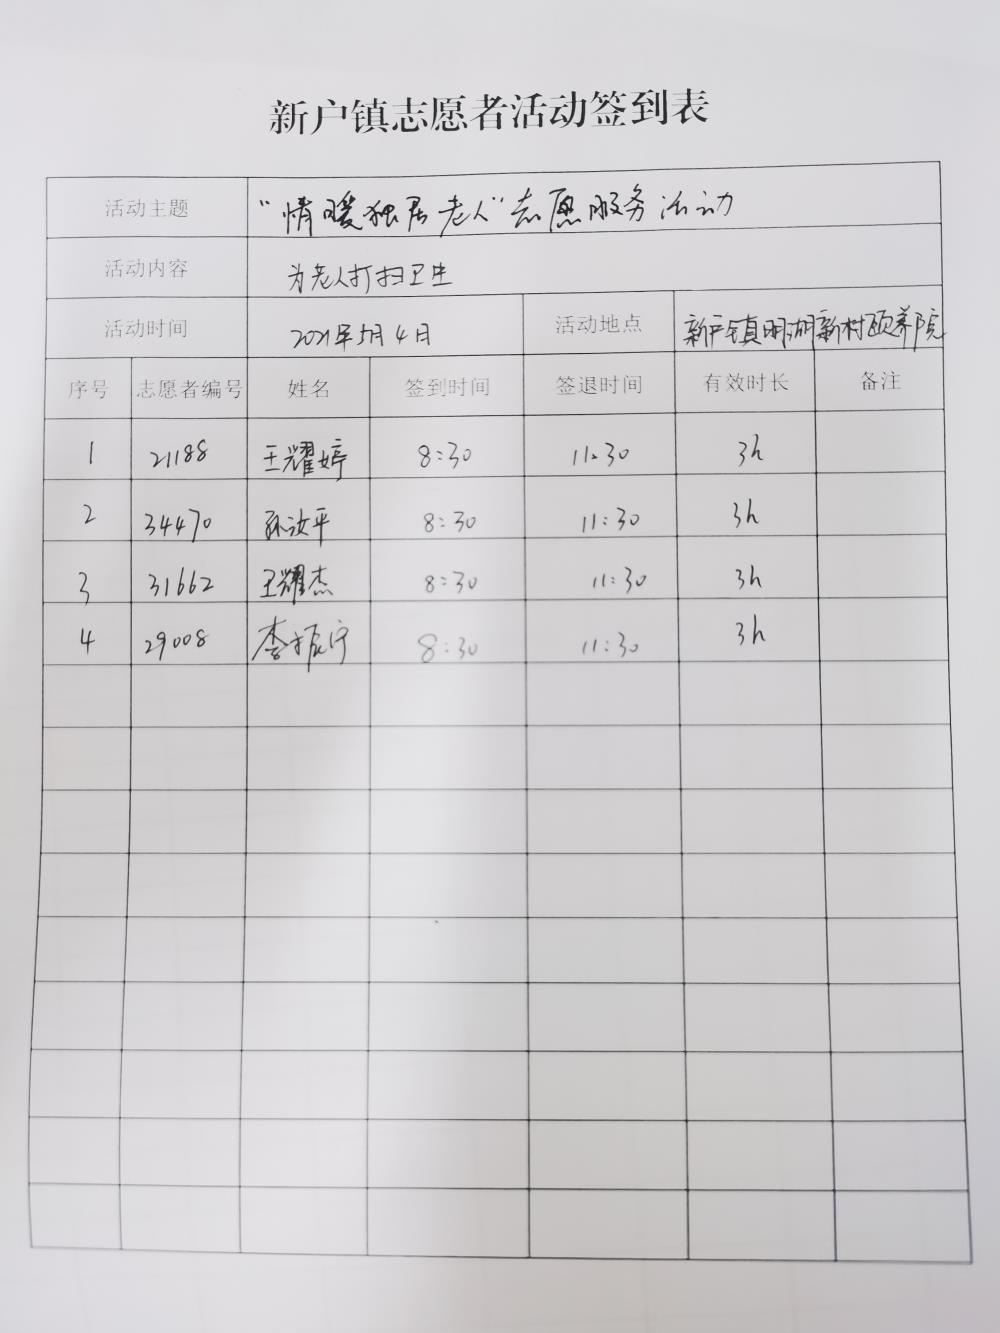 新户镇志愿者活动签到表
活动主题 “情暖独居老人”志愿服务活动
活动内容 为老人打扫卫生
活动时间 2021年5月4日 活动地点 新户镇明湖新村颐养院
序号 志愿者编号 姓名 签到时间 签退时间 有效时长 备注
1 21188 王耀婷 8:30 11:30 3h
2 34470 孙汝平 8:30 11:30 3h
3 31662 王耀杰 8:30 11:30 3h
4 29008 李振宁 8:30 11:30 3h